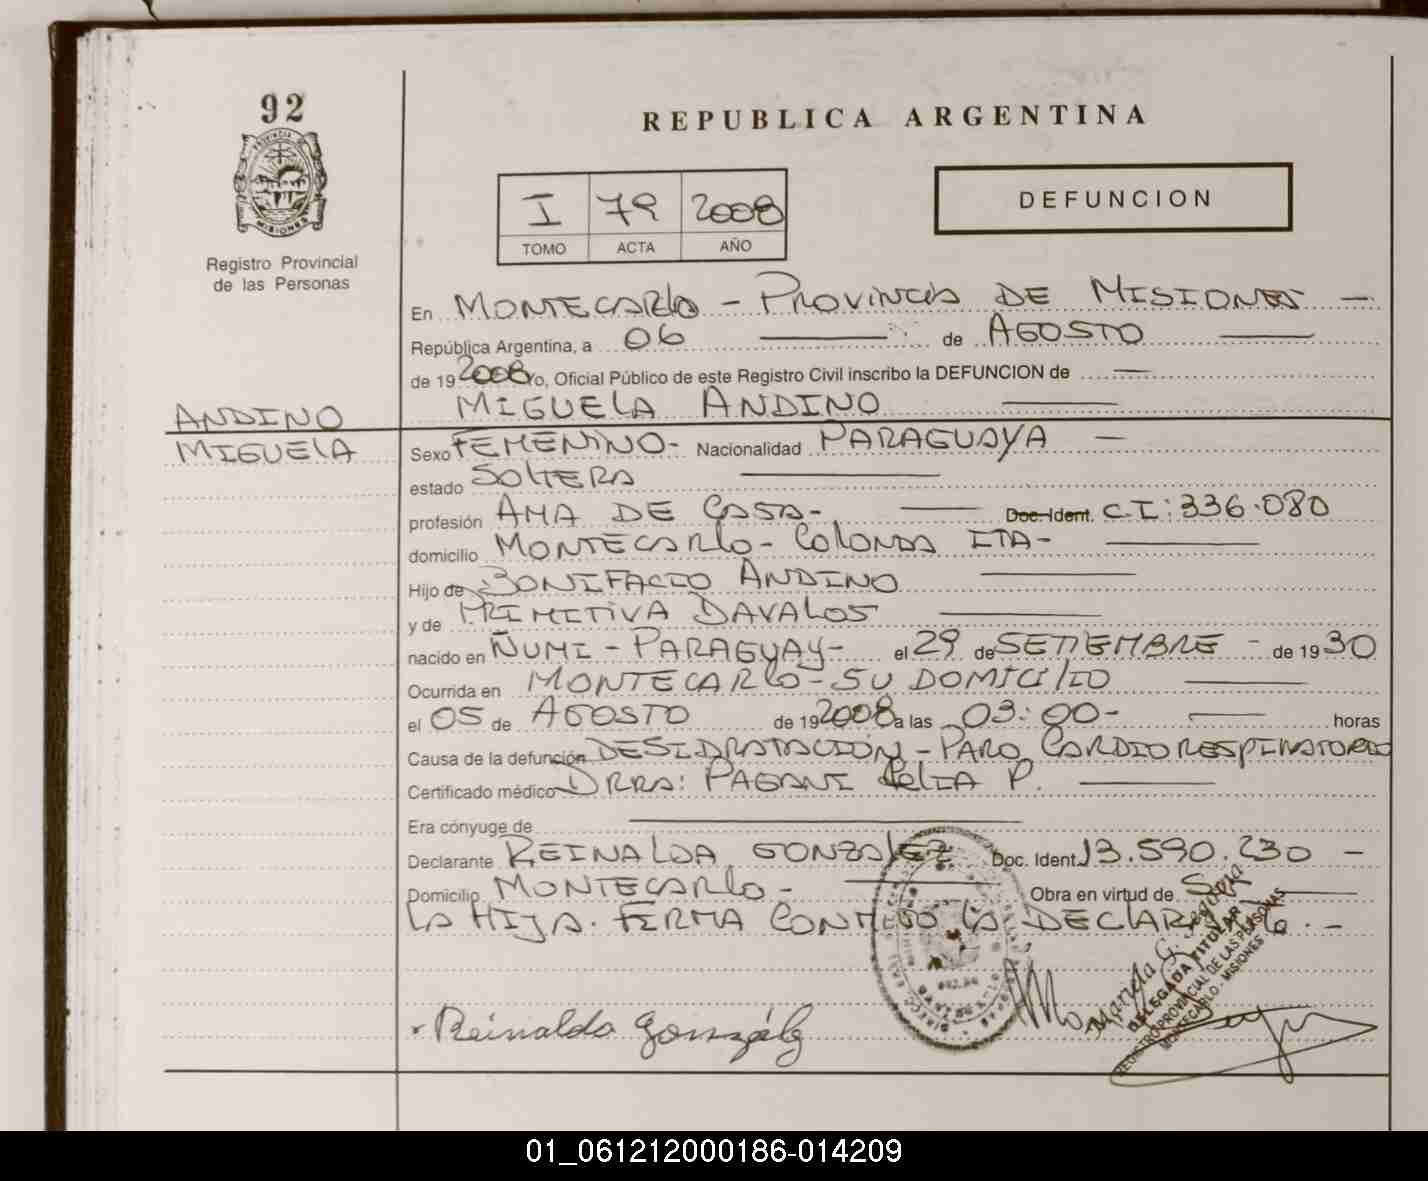 92
PROVINCIA DE
MISIONES
Registro Provincial
de las Personas
REPUBLICA ARGENTINA
I 79 2008
TOMO ACTA AÑO
DEFUNCION
En MONTECARLO - PROVINCIA DE MISIONES -
República Argentina, a 06 de AGOSTO
de 19 2008 Yo, Oficial Público de este Registro Civil inscribo la DEFUNCION de
MIGUELA ANDINO
ANDINO
MIGUELA
Sexo FEMENINO- Nacionalidad PARAGUAYA -
estado SOLTERA
profesión AMA DE CASA- Doc. Ident. C.I: 336.080
domicilio MONTECARLO- COLONIA ITA-
Hijo de BONIFACIO ANDINO
y de PRIMITIVA DAVALOS
nacido en ÑUMI - PARAGUAY- el 29 de SETIEMBRE - de 19 30
Ocurrida en MONTECARLO - SU DOMICILIO
el 05 de AGOSTO de 19 2008 a las 03:00- horas
Causa de la defunción DESIDRATACION - PARO CARDIORESPIRATORIO
Certificado médico DRRA: PAGANI CELIA P.
Era cónyuge de
Declarante REINALDA GONZALEZ Doc. Ident. 13.590.230 -
Domicilio MONTECARLO - Obra en virtud de SER
LA HIJA. FIRMA CONMIGO LA DECLARANTE. -
Reinalda González
DELEGADA TITULAR
REGISTRO PROVINCIAL DE LAS PERSONAS
MONTECARLO - MISIONES
01_061212000186-014209